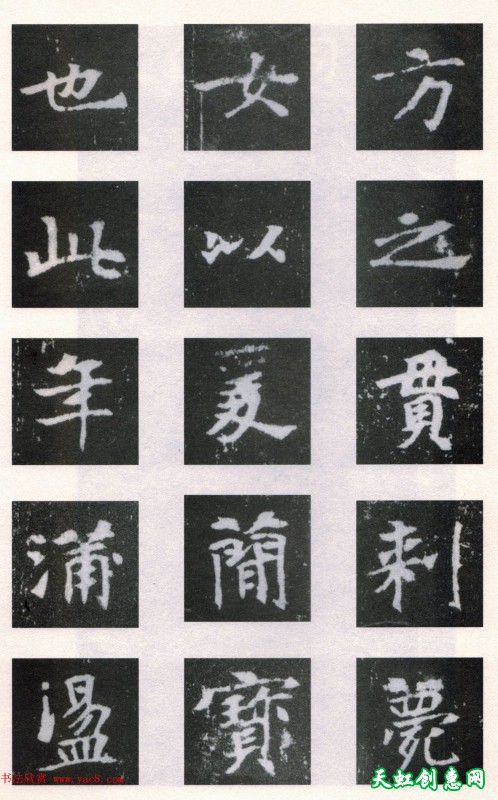 方之貫刺薨
女以簡寶
也此年浦盪
书法欣赏 www.yac8.com
天虹创惠网